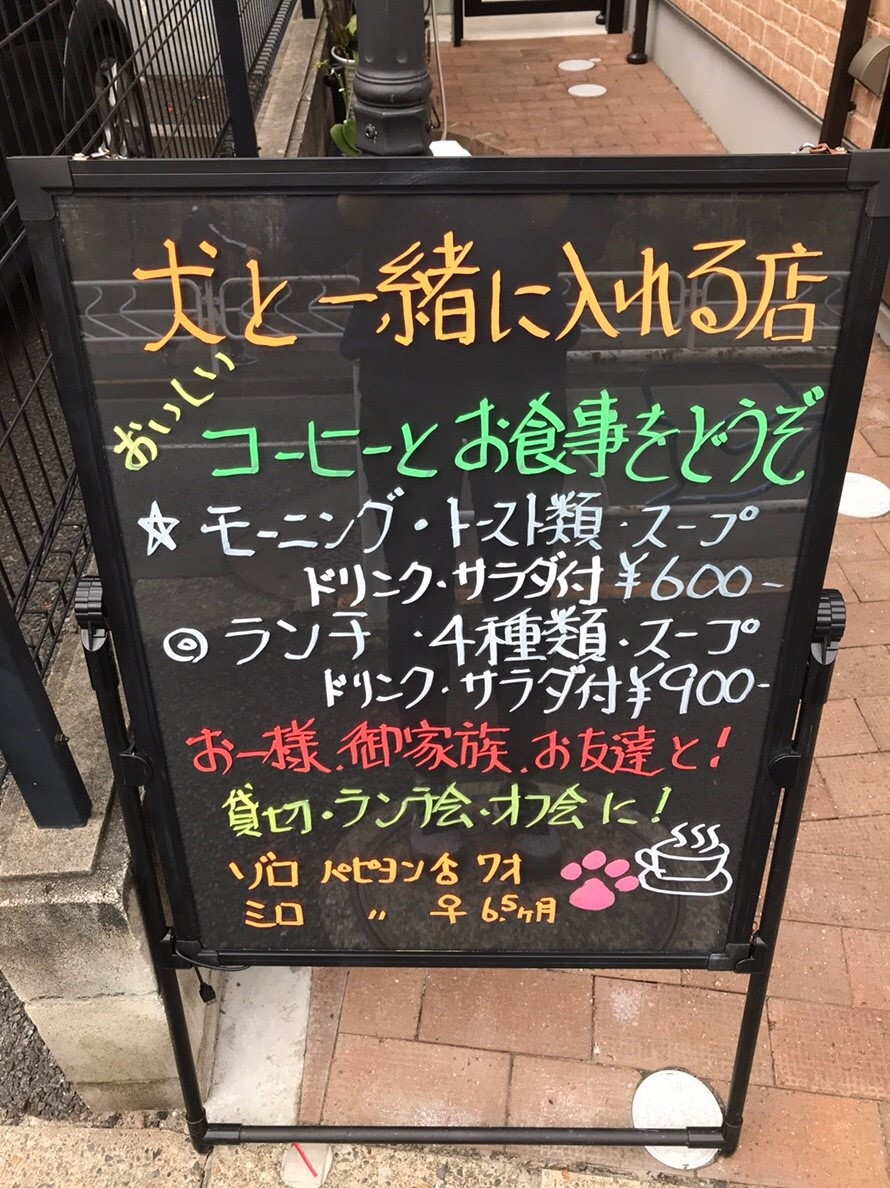 犬と一緒に入れる店
おいしい
コーヒーとお食事をどうぞ
☆ モーニング・トースト類・スープ
ドリンク・サラダ付 ¥600-
◎ ランチ ・4種類・スープ
ドリンク・サラダ付 ¥900-
お一様、御家族、お友達と!
貸切・ランチ会・オフ会に!
ゾロ パピヨン 含 7才
ミロ 〃 ♀ 6.5ヶ月